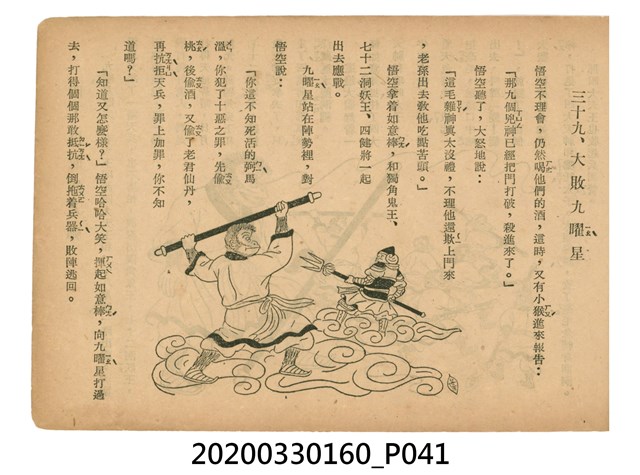 三十九、大敗九曜星
悟空不理會，仍然喝他們的酒，這時，又有小猴進來報告：
「那九個兇神已經把門打破，殺進來了。」
悟空聽了，大怒地說：
「這毛賊神真太沒禮，不理他還欺上門來
，老孫出去教他吃點苦頭。」
悟空拿着如意棒，和獨角鬼王、
七十二洞妖王、四健將一起
出去應戰。
九曜星站在陣勢裡，對
悟空說：
「你這不知死活的弼馬
溫，你犯了十惡之罪，先偷
桃，後偷酒，又偷了老君仙丹，
再抗拒天兵，罪上加罪，你不知
道嗎？」
「知道又怎麼樣？」悟空哈哈大笑，揮起如意棒，向九曜星打過
去，打得個個那敢抵抗，倒拖着兵器，敗陣逃回。
20200330160_P041